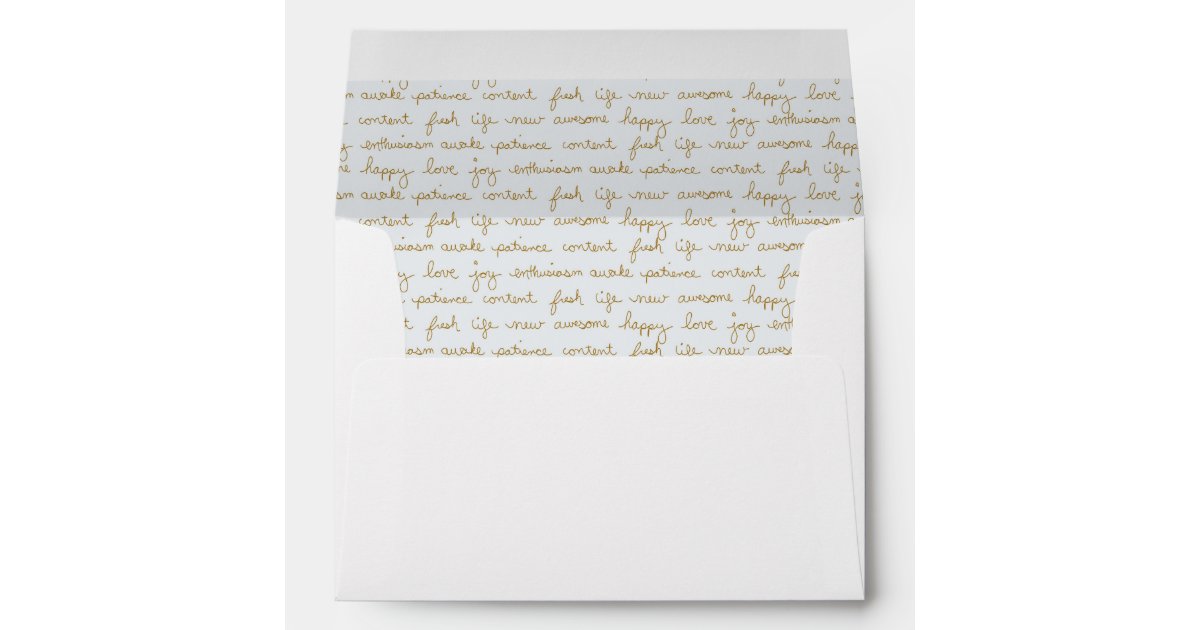 m awake patience content fresh life new awesome happy love
content fresh life new awesome happy love joy enthusiasm a
y enthusiasm awake patience content fresh life new awesome happy
me happy love joy enthusiasm awake patience content fresh life
m awake patience content fresh life new awesome happy love j
content fresh life new awesome happy love joy enthusiasm a
siasm awake patience content fresh life new awesom
y love joy enthusiasm awake patience content fre
patience content fresh life new awesome happy
t fresh life new awesome happy love joy enth
asm awake patience content fresh life new awes